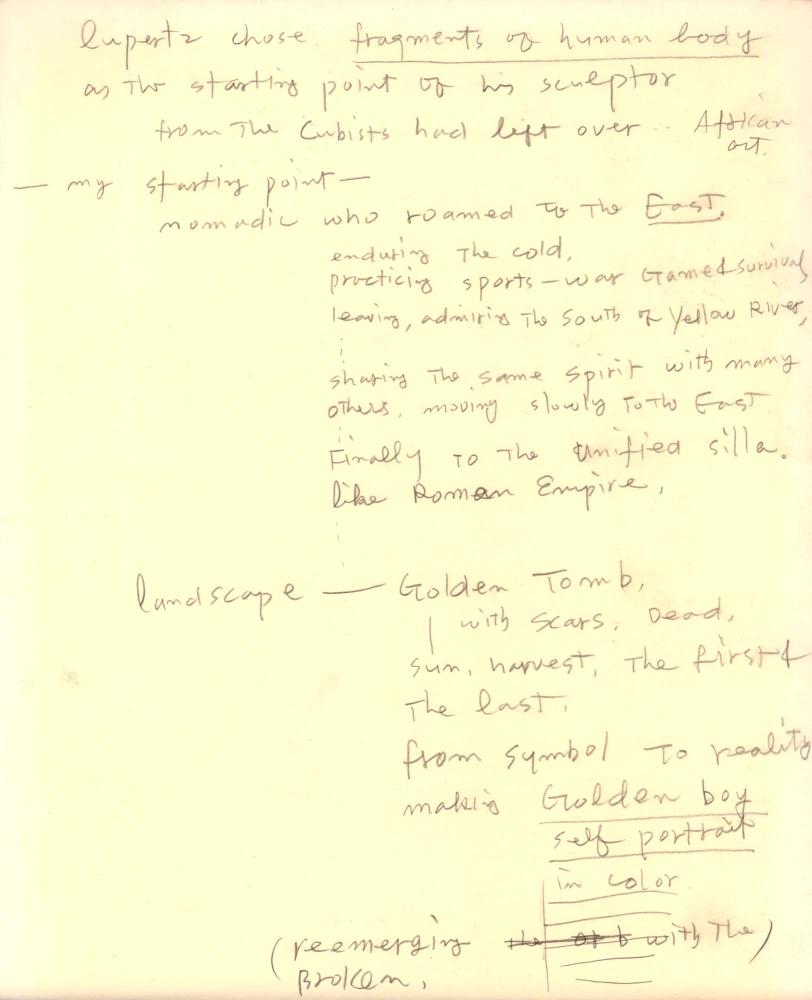 lupertz chose fragments of human body
as the starting point of his sculptor
from The Cubists had left over .. African
art.
— my starting point —
nomadic who roamed to The East.
enduring The cold,
practicing sports — war Game & survival,
leaving, admiring The South of Yellow River,
sharing The same spirit with many
others, moving slowly To the East
Finally to The Unified silla.
like Roman Empire,
landscape — Golden Tomb,
with scars, Dead,
sun, harvest, The first &
The last,
from symbol To reality
making Golden boy
self portrait
in color
(reemerging the with The)
Broken,